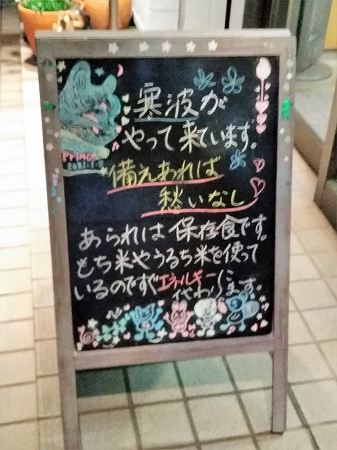 寒波が
やって来ています。
備えあれば
愁いなし
あられは保存食です。
もち米やうるち米を使って
いるのですぐエネルギーに
代わります。
Prince